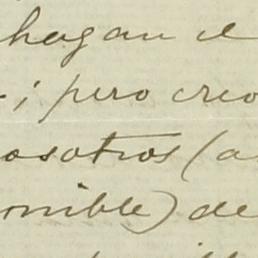 hagan e
; pero creo
osotros (a
onible) de